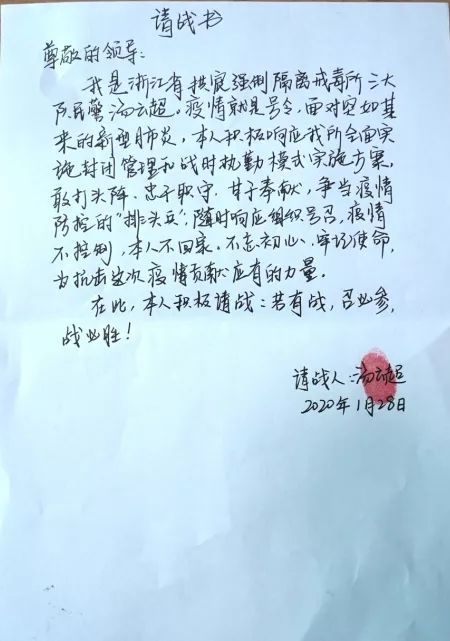 请战书
尊敬的领导：
我是浙江省拱宸强制隔离戒毒所三大
队民警汤云超。疫情就是号令，面对突如其
来的新型肺炎，本人积极响应我所全面实
施封闭管理和战时执勤模式实施方案，
敢打头阵、忠于职守、甘于奉献，争当疫情
防控的“排头兵”，随时响应组织号召，疫情
不控制，本人不回家。不忘初心、牢记使命，
为抗击这次疫情贡献应有的力量。
在此，本人积极请战：若有战，召必参，
战必胜！
请战人：汤云超
2020年1月28日